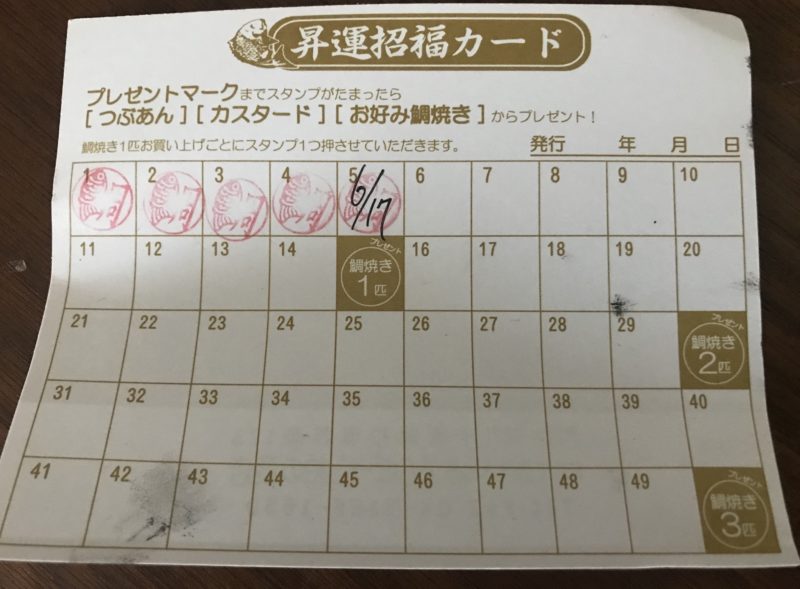 昇運招福カード
プレゼントマークまでスタンプがたまったら
[つぶあん][カスタード][お好み鯛焼き]からプレゼント!
鯛焼き1匹お買い上げごとにスタンプ1つ押させていただきます。 発行 年 月 日
1 2 3 4 5 6 7 8 9 10
6/17
11 12 13 14 プレゼント 鯛焼き 1匹 16 17 18 19 20
21 22 23 24 25 26 27 28 29 プレゼント 鯛焼き 2匹
31 32 33 34 35 36 37 38 39 40
41 42 43 44 45 46 47 48 49 プレゼント 鯛焼き 3匹